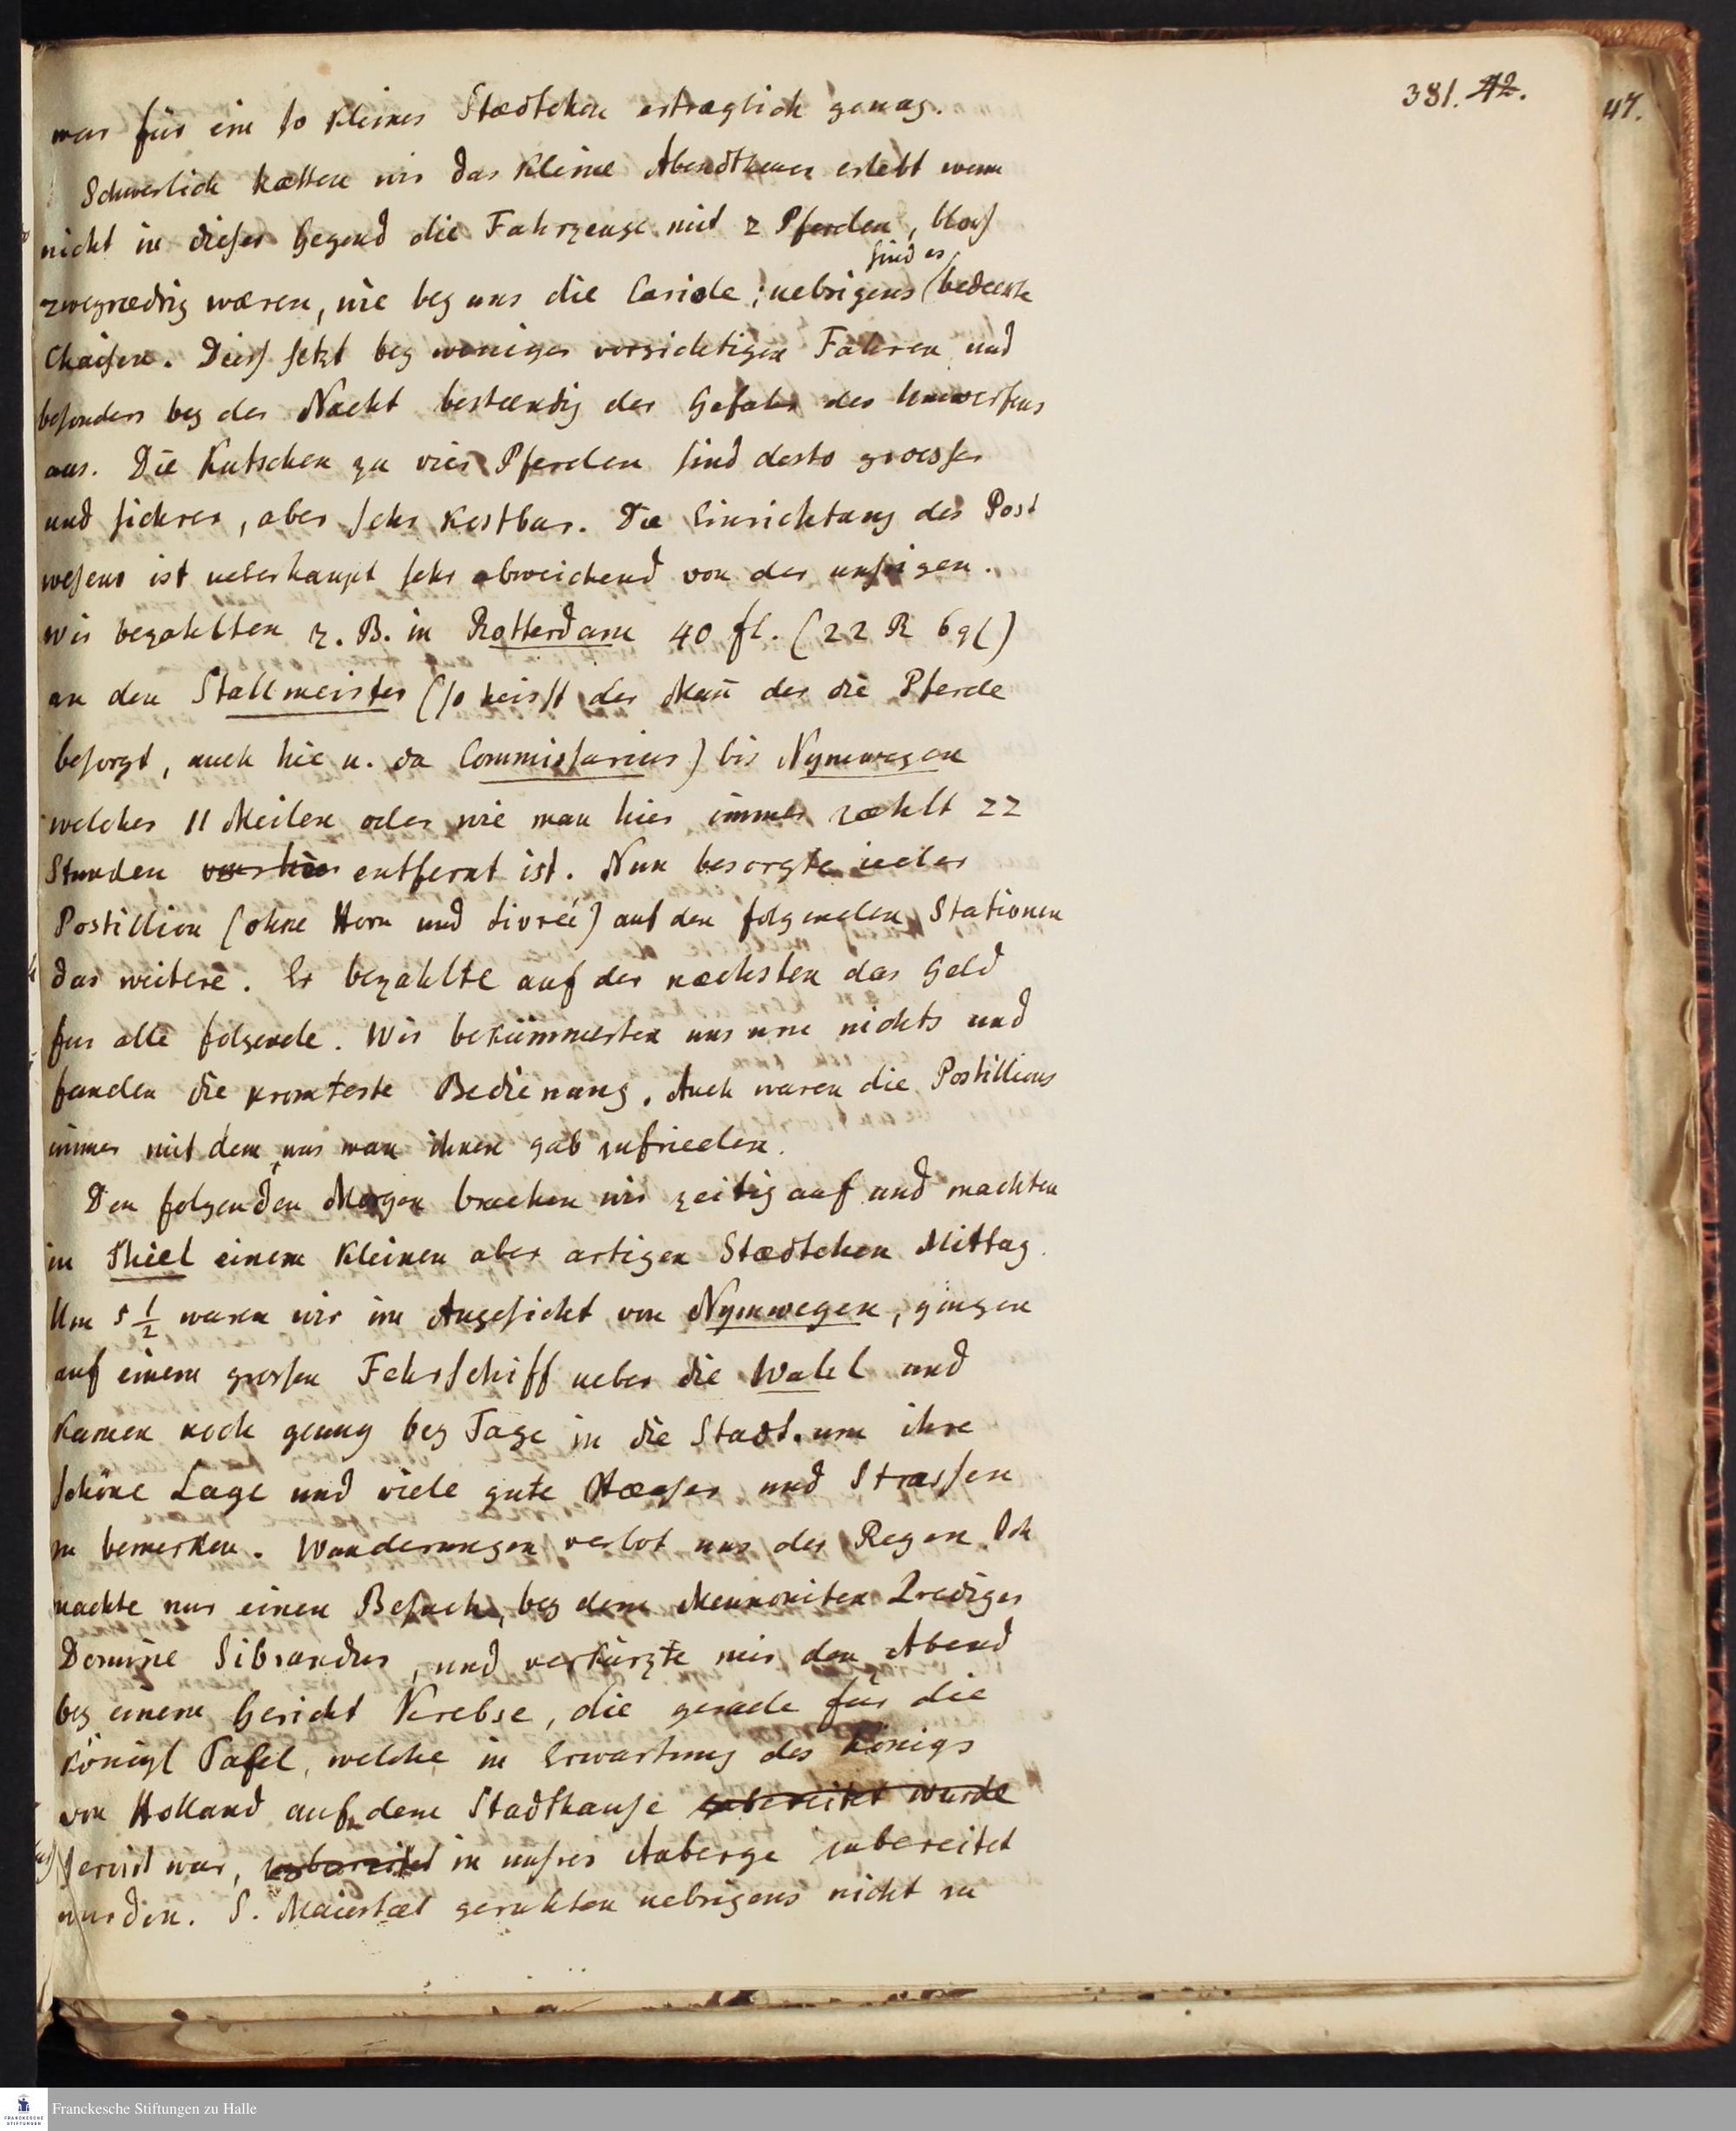 381. 42.
47.
war für ein so kleines Stædtchen ertræglich genug.
Schwerlich hætten wir das kleine Abendtheuer erlebt wenn
nicht in dieser Gegend die Fahrzeuge mit 2 Pferden, bloss
sind es
zweyrædrig wæren, wie bey uns die Cariole; uebrigens bedeckte
Chaisen. Diess setzt bey weniger vorsichtigen Fahren und
besonders bey der Nacht bestændig der Gefahr des Umwerfens
aus. Die Kutschen zu vier Pferden sind desto groesser
und sichrer, aber sehr kostbar. Die Einrichtung des Post
wesens ist ueberhaupt sehr abweichend von der unsrigen.
Wir bezahlten z. B. in Rotterdam 40 fl. (22 R 6 gl)
an den Stallmeister (so heisst der Mañ der die Pferde
besorgt, auch hie u. da Commissarius) bis Nymwegen
welches 11 Meilen oder wie man hier immer zæhlt 22
Stunden von hier entfernt ist. Nun besorgte ieder
Postillion (ohne Horn und Livreé) auf den folgenden Stationen
das weitere. Er bezahlte auf der næchsten das Geld
fur alle folgende. Wir bekümmerten uns um nichts und
fanden die promteste Bedienung. Auch waren die Postillions
immer mit dem was man ihnen gab zufrieden.
Den folgenden Morgen brachen wir zeitig auf und machten
in Thiel einem kleinen aber artigen Stædtchen Mittag.
Um 5 1/2 waren wir im Angesicht von Nymwegen, gingen
auf einem grossen Fehrschiff ueber die Wahl und
kamen noch genug bey Tage in die Stadt. um ihre
schöne Lage und viele gute Hæuser und Strassen
zu bemerken. Wanderungen verbot uns der Regen. Ich
machte nur einen Besuch, bey dem Mennoniten Prediger
Domine Sibrandus, und verkürzte mir den Abend
bey einem Gericht Krebse, die gerade für die
königl Tafel, welche in Erwartung des Königs
von Holland auf dem Stadthause zubereitet wurde
servirt war, zubereitet in unsrer Auberge zubereitet
wurden. S. Maiestæt geruhten uebrigens nicht zu
Franckesche Stiftungen zu Halle
FRANCKESCHE STIFTUNGEN